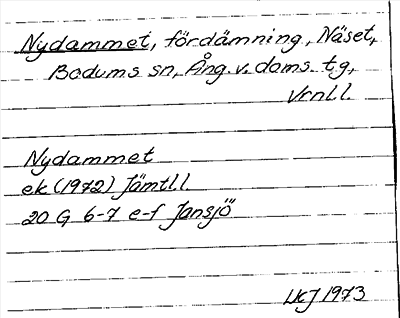 Nydammet, fördämning, Näset,
Bodums sn, Ång. v. doms. t.g,
Vrnl.l.
Nydammet
ek (1972) Jämtl.l
20 G 6-7 e-f Jansjö
LKJ 1973